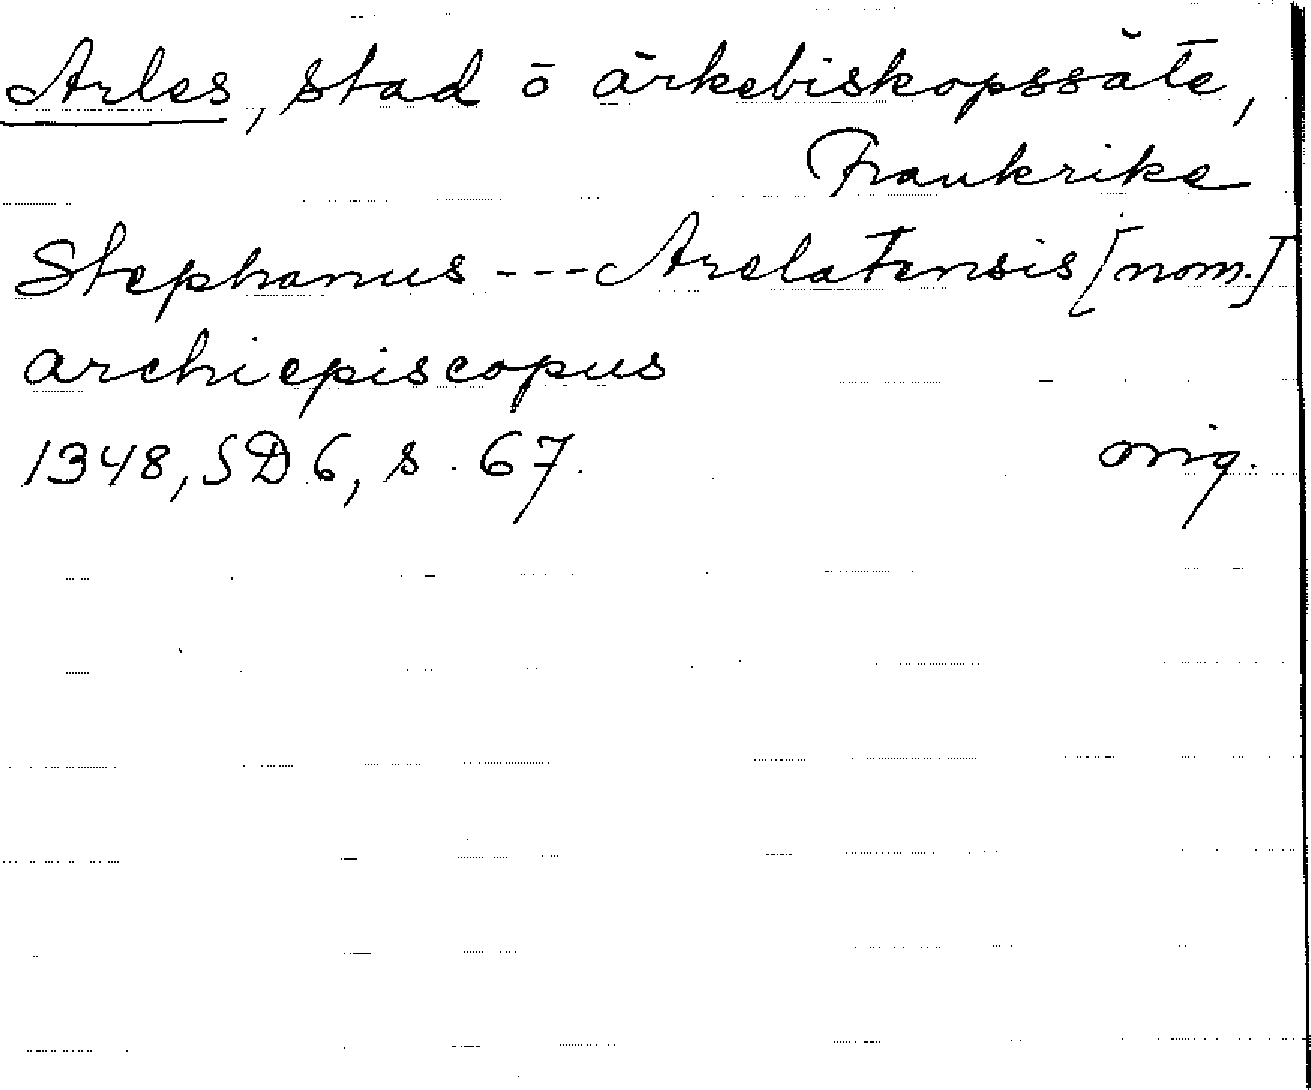 Arles, stad o ärkebiskopssäte,
Frankrike
Stephanus --- Arelatensis [nom.]
archiepiscopus
1348, SD 6, s. 67. orig.